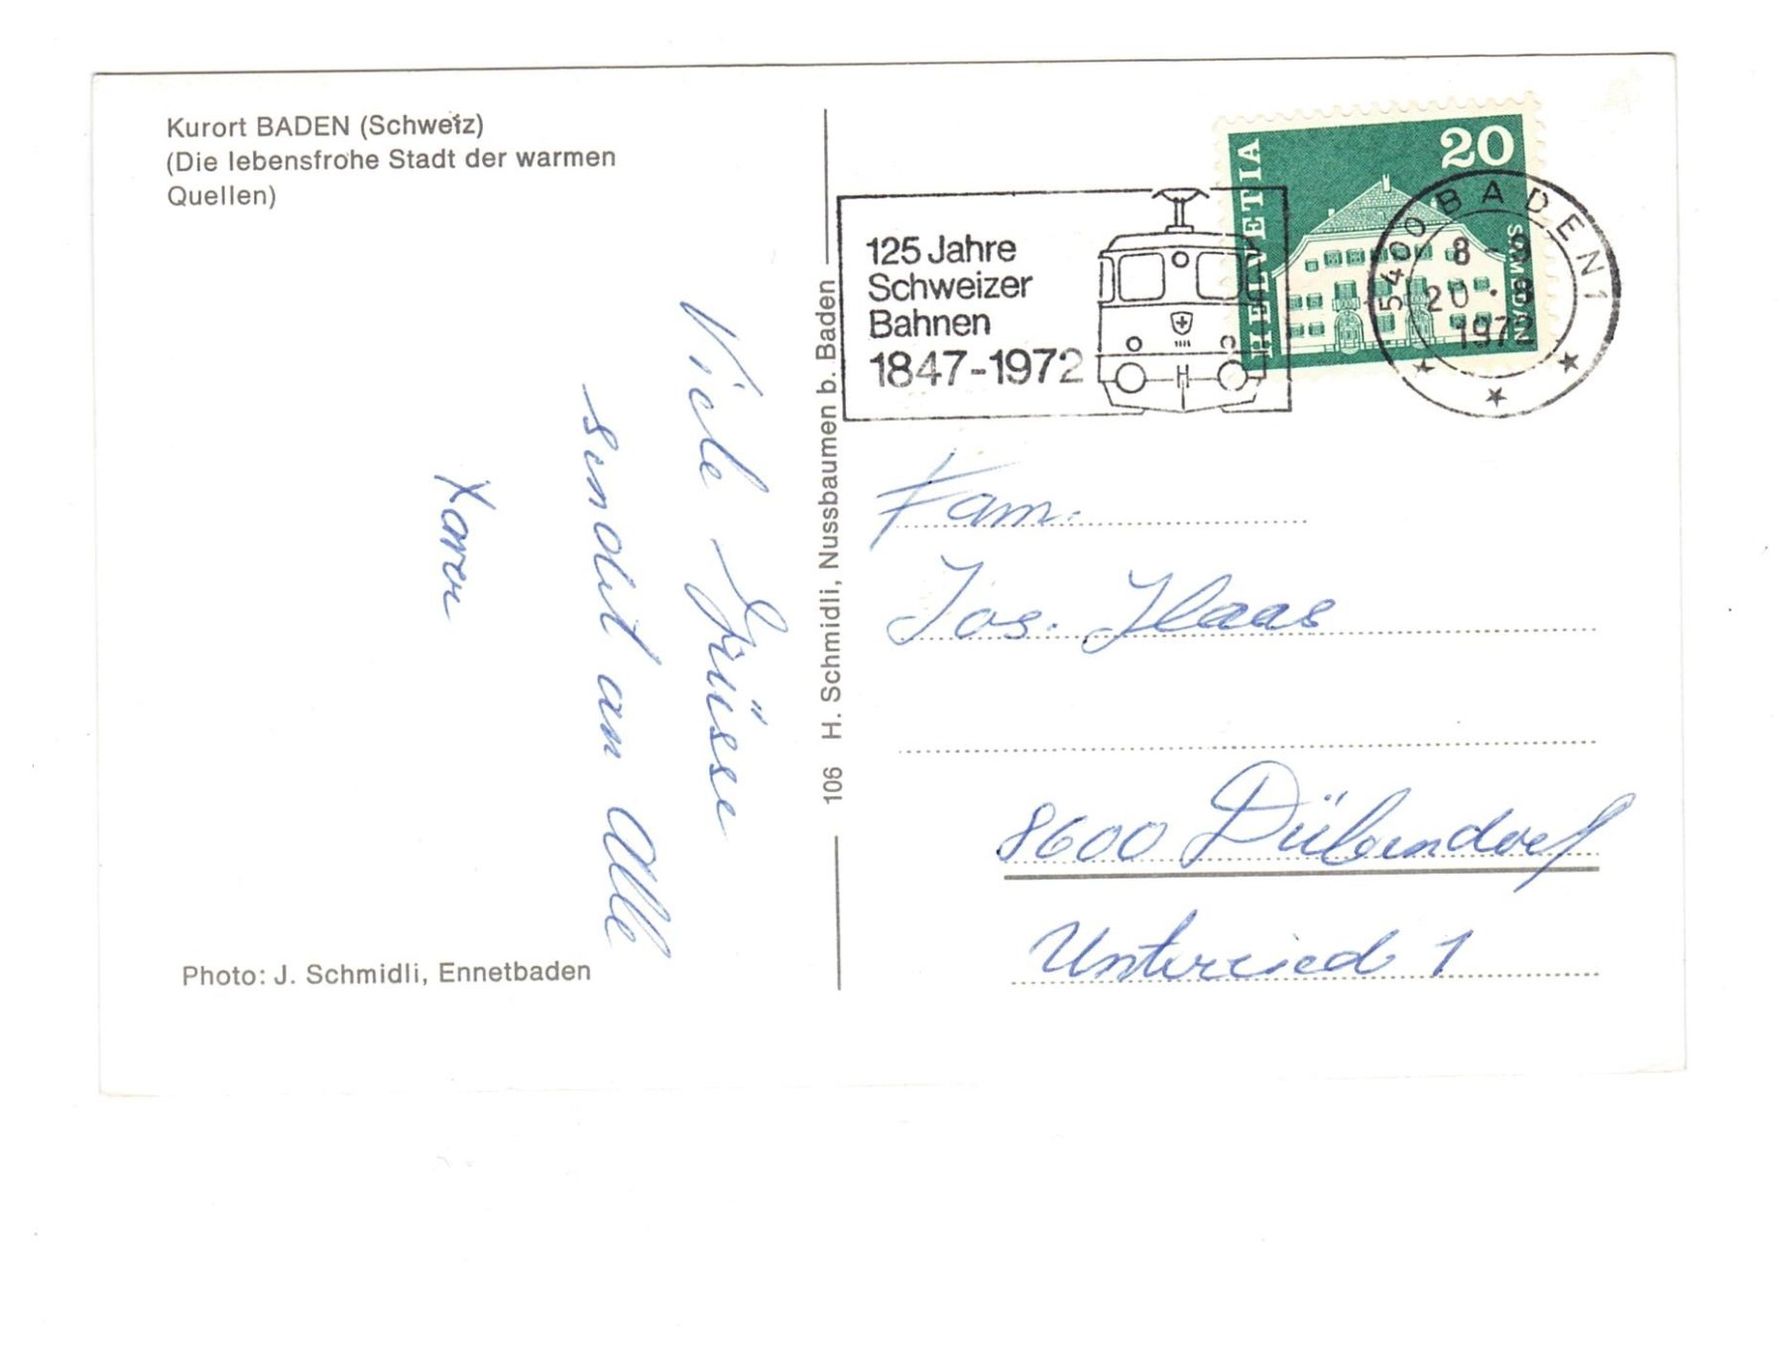 Kurort BADEN (Schweiz)
(Die lebensfrohe Stadt der warmen
Quellen)
Viele Grüsse
sendet an Alle
Karen
Photo: J. Schmidli, Ennetbaden
106 H. Schmidli, Nussbaumen b. Baden
125 Jahre
Schweizer
Bahnen
1847-1972
HELVETIA
20
5400 BADEN 1
8-9
20.8
1972
Fam.
Jos. Haas
8600 Dübendorf
Unterried 1